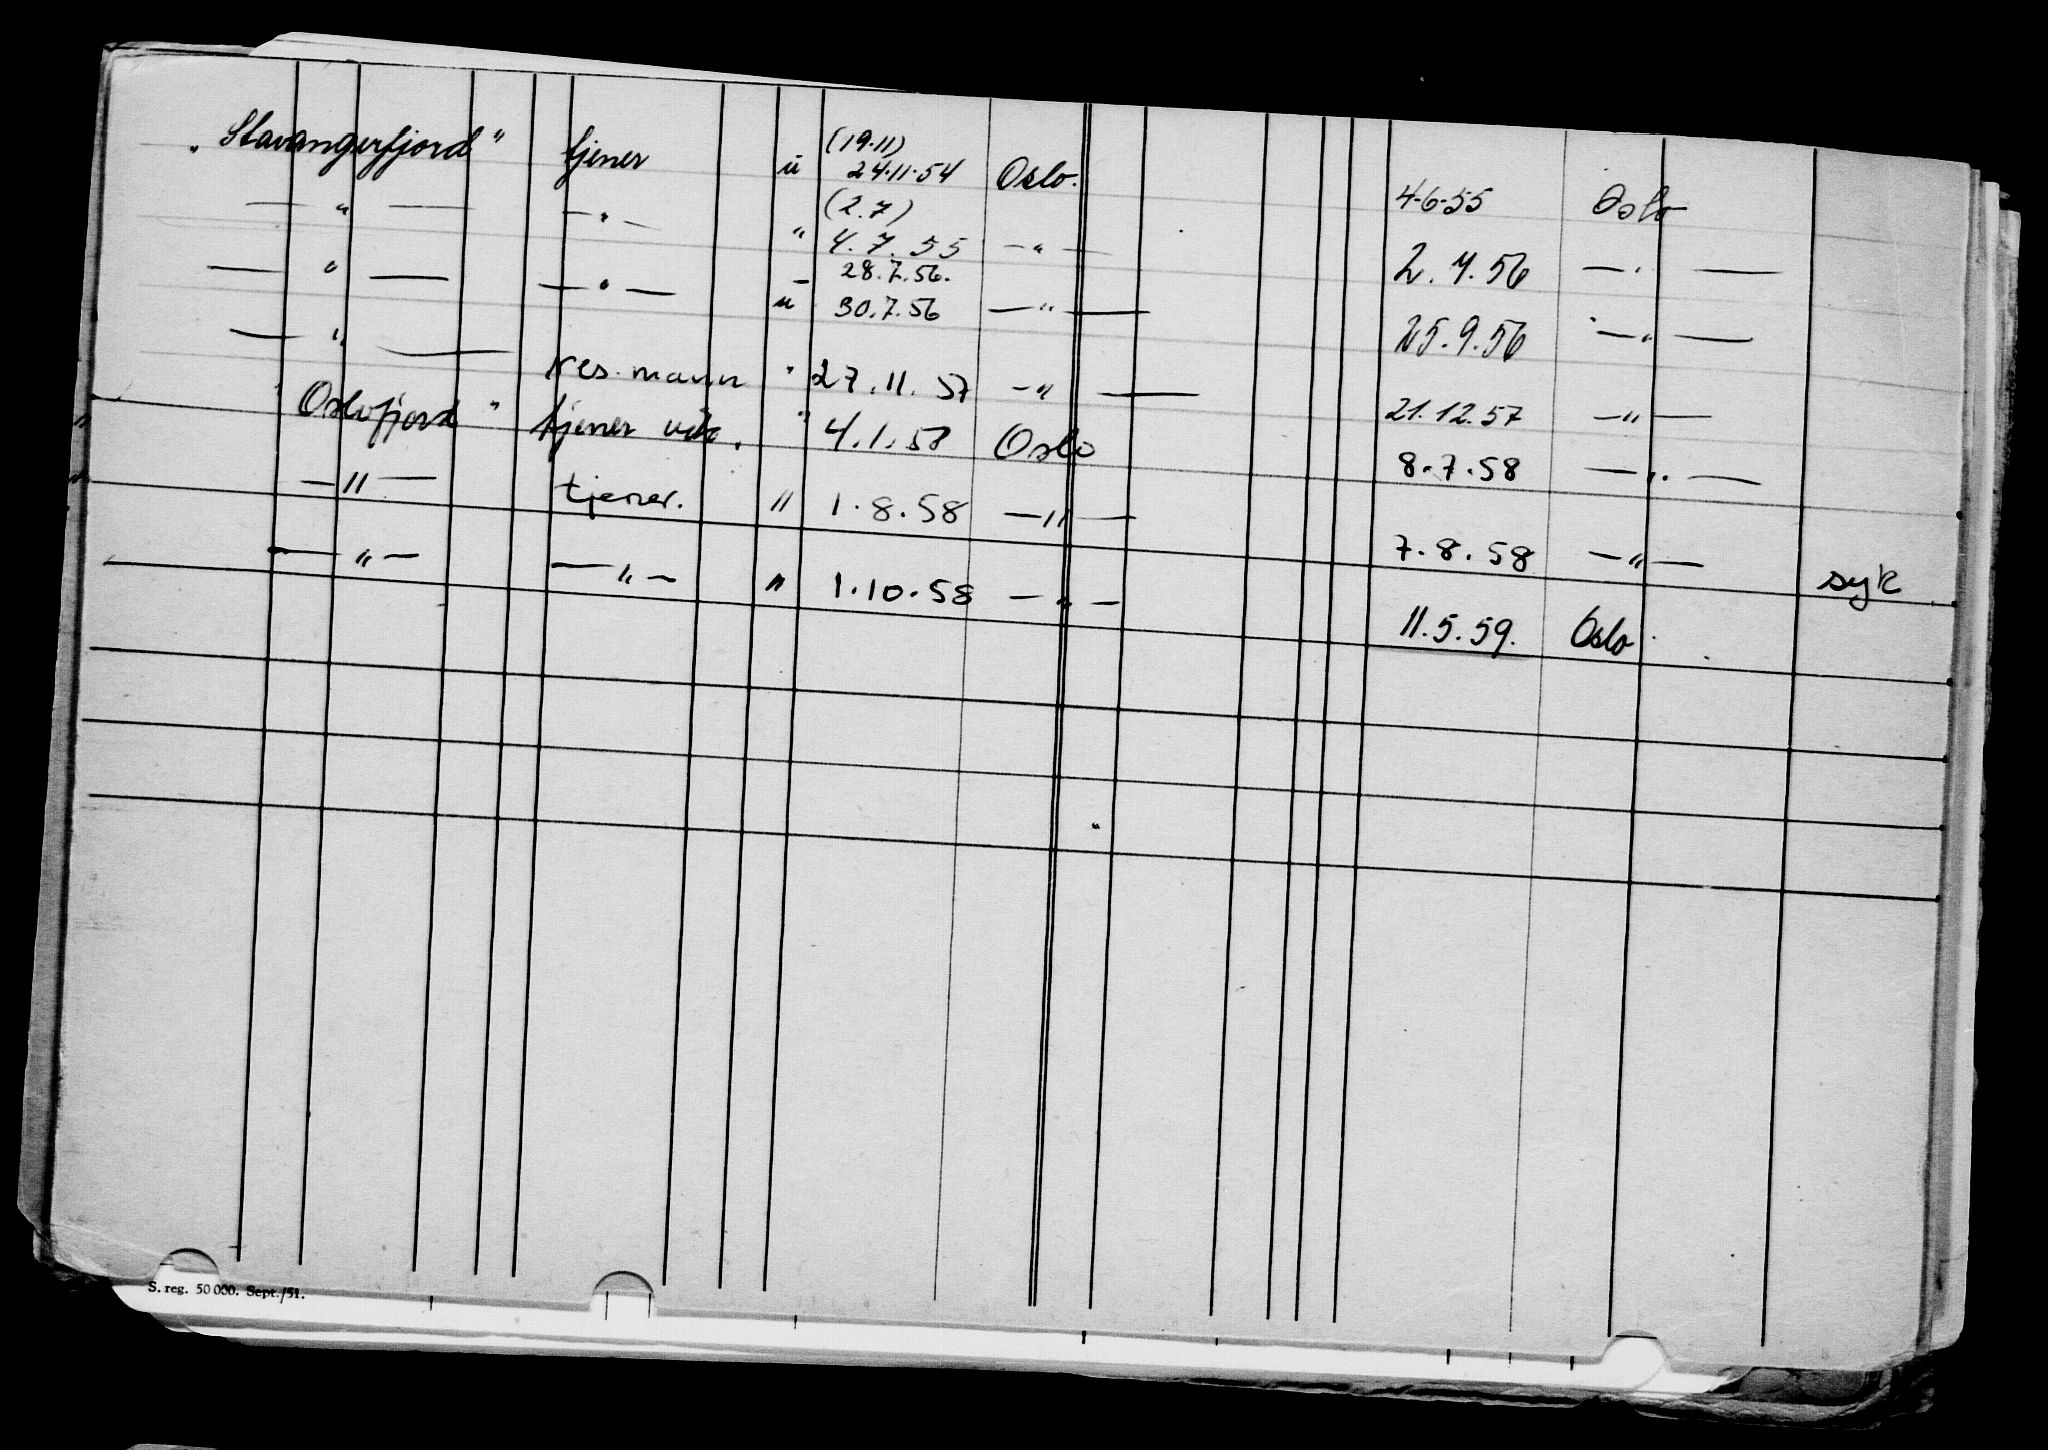 „ Stavangerfjord " tjener u (19.11) 24.11.54 Oslo. 4-6-55 Oslo
— " — — " — " (2.7) 4.7.55 — " — 2.4.56 — " —
— " — — " — — 28.7.56.
u 30.7.56 — " — 25.9.56 — " —
— " — res. mann " 27.11.57 — " — 21.12.57 — " —
" Oslofjord " tjener " 4.1.58 Oslo 8.7.58 — " —
— " — tjener. " 1.8.58 — " — 7.8.58 — " — syk
— " — — " — " 1.10.58 — " — 11.5.59. Oslo
S. reg. 50 000. Sept./51.